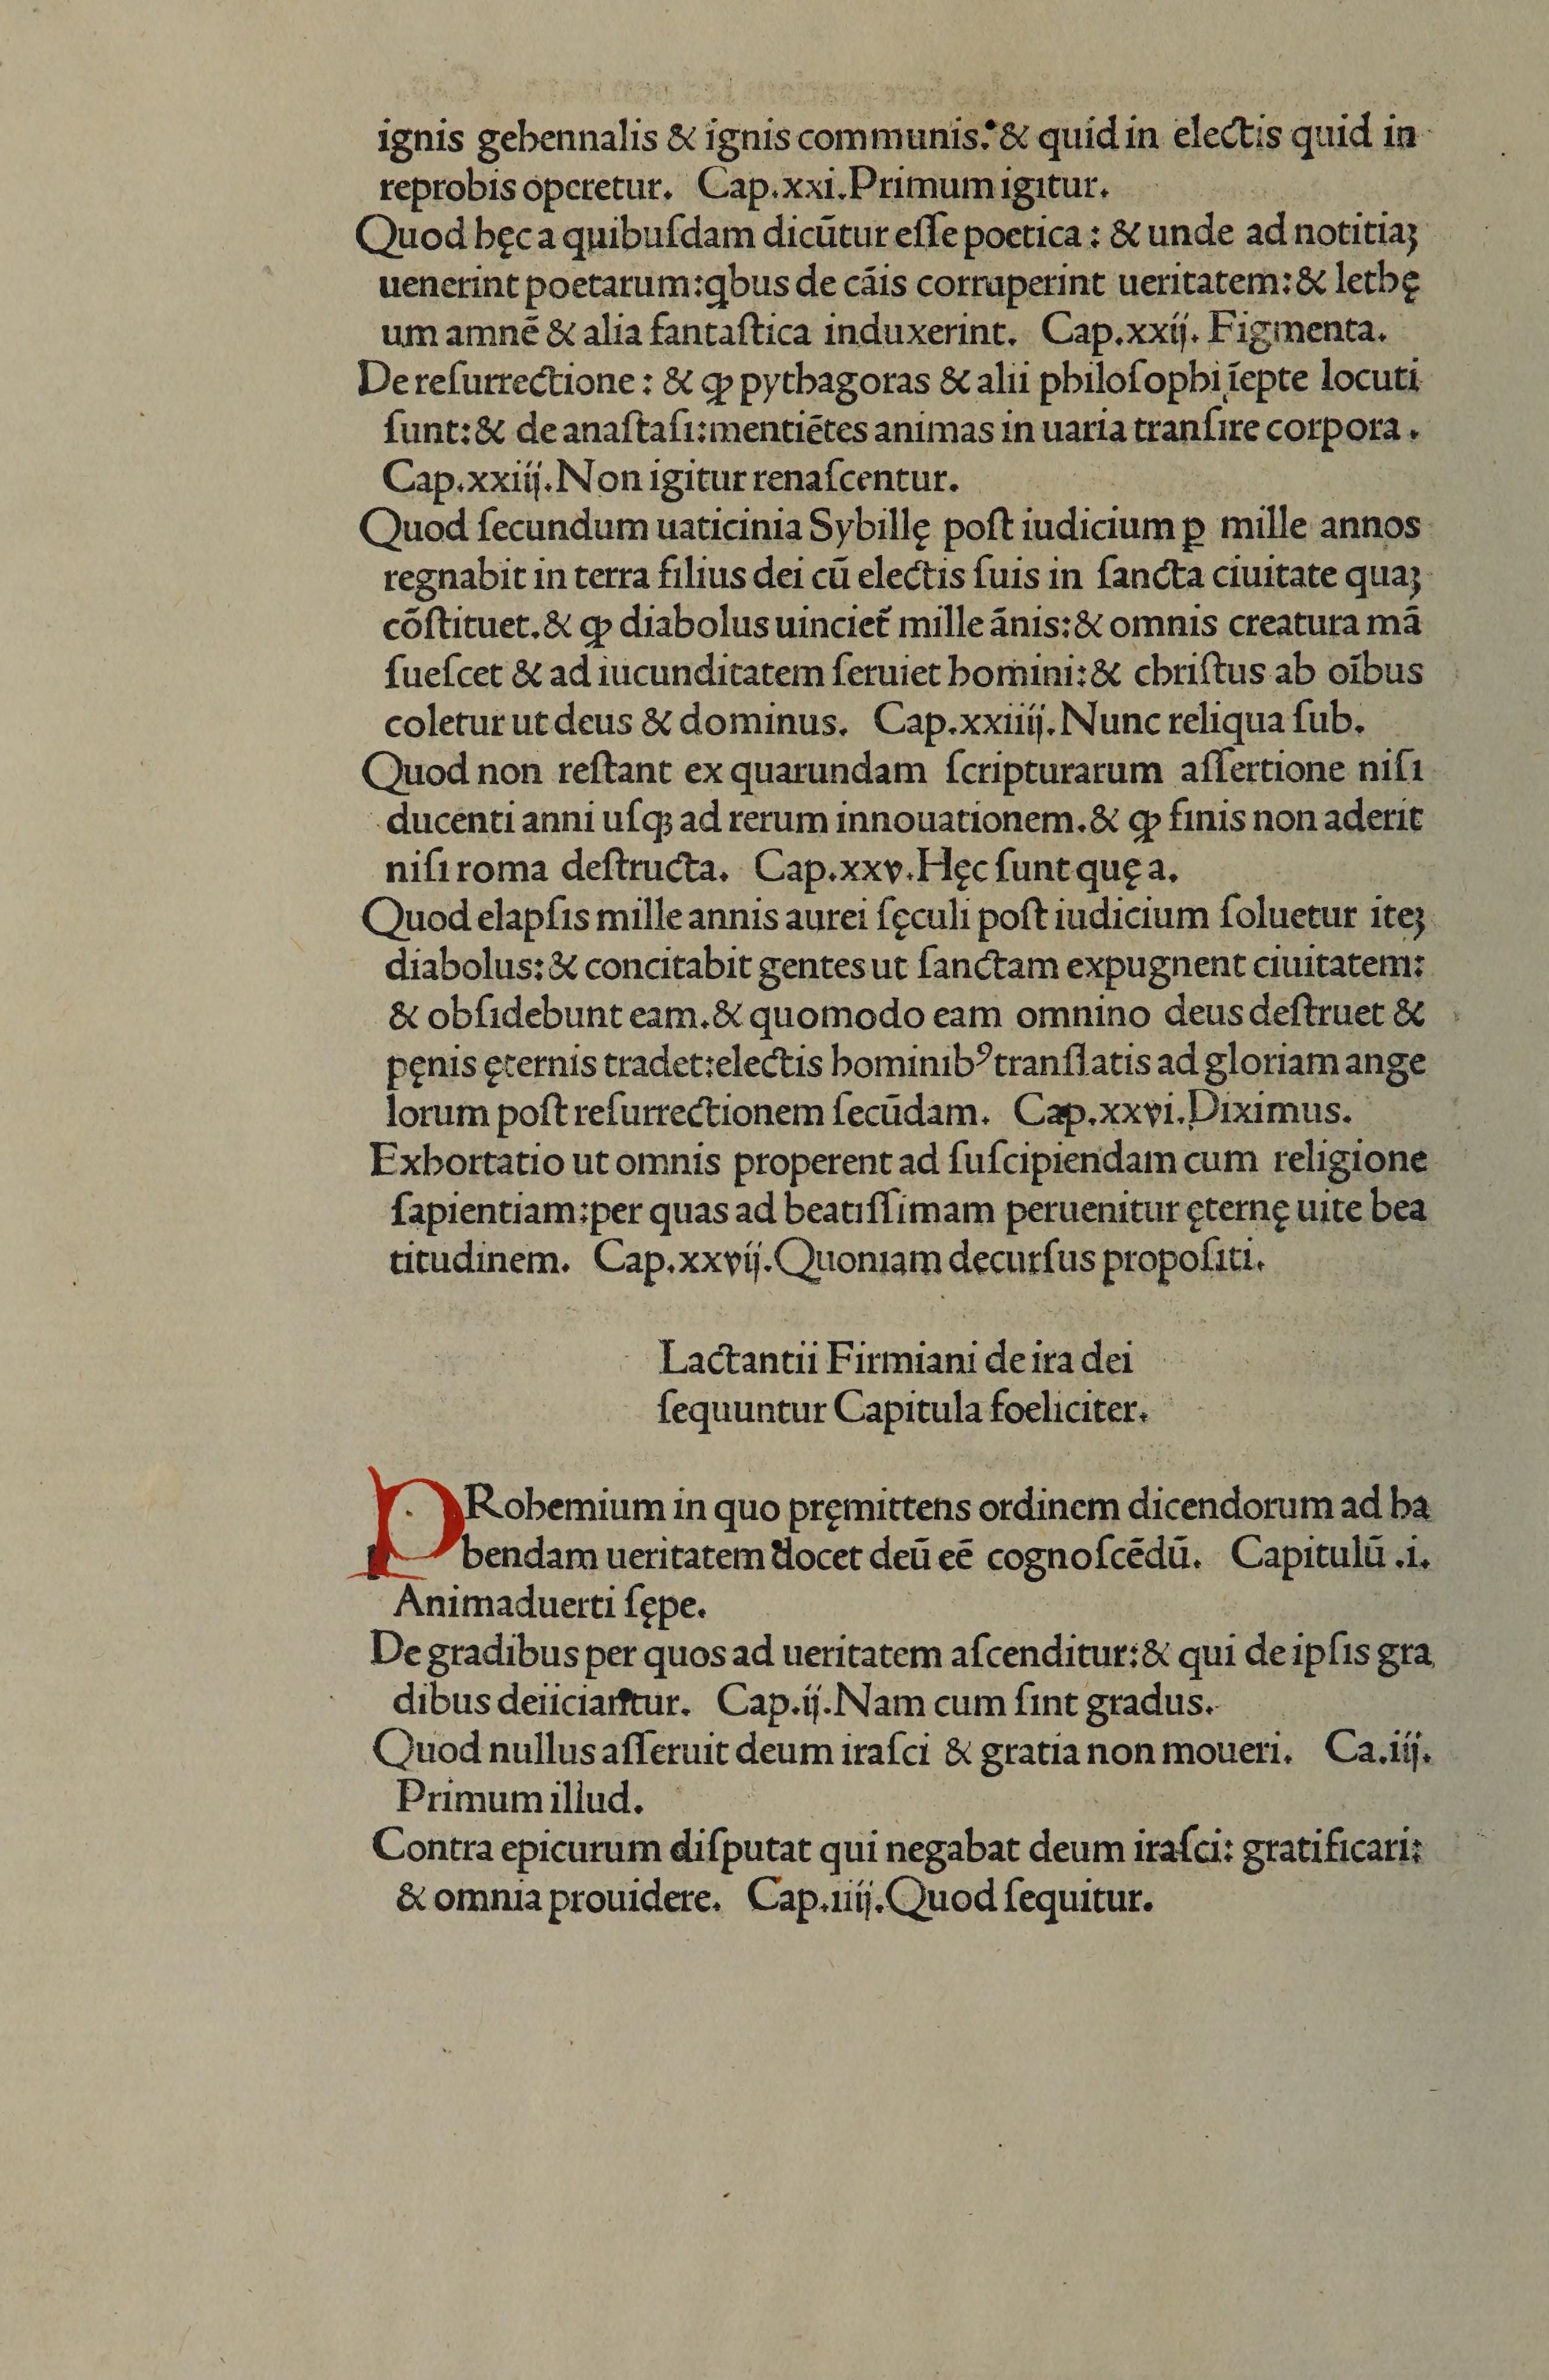 ignis gehennalis & ignis communis:&  quid in electis quid in
reprobis operetur. Cap.xxi.Primum igitur.
Quod hęc a quibuſdam dicūtur eſſe poetica : & unde ad notitiaꝫ
uenerint poetarum:qbus de cāis corruperint ueritatem:& lethę
um amnē & alia fantaſtica induxerint. Cap.xxij. Figmenta.
De reſurrectione : & ꝙ pythagoras & alii philoſophi īepte locuti
ſunt:& de anaſtaſi:mentiētes animas in uaria tranſire corpora .
Cap.xxiij.Non igitur renaſcentur.
Quod ſecundum uaticinia Sybillę poſt iudicium ꝑ mille annos
regnabit in terra filius dei cū electis ſuis in ſancta ciuitate quaꝫ
cōſtituet.& ꝙ diabolus uinciet̄ mille ānis:& omnis creatura mā
ſueſcet & ad iucunditatem ſeruiet homini:& chriſtus ab oībus
coletur ut deus & dominus. Cap.xxiiij.Nunc reliqua ſub.
Quod non reſtant ex quarundam ſcripturarum aſſertione niſi
ducenti anni uſqꝫ ad rerum innouationem.& ꝙ finis non aderit
niſi roma deſtructa. Cap.xxv.Hęc ſunt quę a.
Quod elapſis mille annis aurei ſęculi poſt iudicium ſoluetur iteꝫ
diabolus:& concitabit gentes ut ſanctam expugnent ciuitatem:
& obſidebunt eam.& quomodo eam omnino deus deſtruet &
pęnis ęternis tradet:electis hominibꝰ tranſlatis ad gloriam ange
lorum poſt reſurrectionem ſecūdam. Cap.xxvi.Diximus.
Exhortatio ut omnis properent ad ſuſcipiendam cum religione
ſapientiam:per quas ad beatiſſimam peruenitur ęternę uite bea
titudinem. Cap.xxvij.Quoniam decurſus propoſiti.
Lactantii Firmiani de ira dei
ſequuntur Capitula foeliciter.
PRohemium in quo pręmittens ordinem dicendorum ad ha
bendam ueritatem docet deū eē cognoſcēdū. Capitulū .i.
Animaduerti ſępe.
De gradibus per quos ad ueritatem aſcenditur:& qui de ipſis gra
dibus deiiciantur. Cap.ij.Nam cum ſint gradus.
Quod nullus aſſeruit deum iraſci & gratia non moueri. Ca.iij.
Primum illud.
Contra epicurum diſputat qui negabat deum iraſci: gratificari:
& omnia prouidere. Cap.iiij.Quod ſequitur.